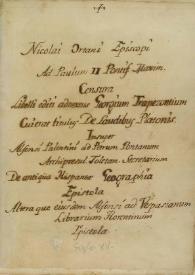 Nicolai Ortani Episcopi
Ad Paulum II Pontif. Maxim.
Censura
Libelli editi adversus Georgium Trapezuntium
Cui erat titulus De Laudibus Platonis.
Insuper
Alfonsi Palentini ad Petrum Pontanum
Archipresul. Toletan. Secretarium
De antiqua Hispaniae Geographia
Epistola
Altera que eiusdem Alfonsi ad Vespasianum
Librarium Florentinum
Epistola
Siglo XV